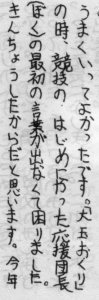 うまくいってよかったです。「大玉おくり」
の時、競技の、はじめにやった応援団長
「ぼく」の最初の言葉が出なくて困りました。
きんちょうしたからだと思います。今年